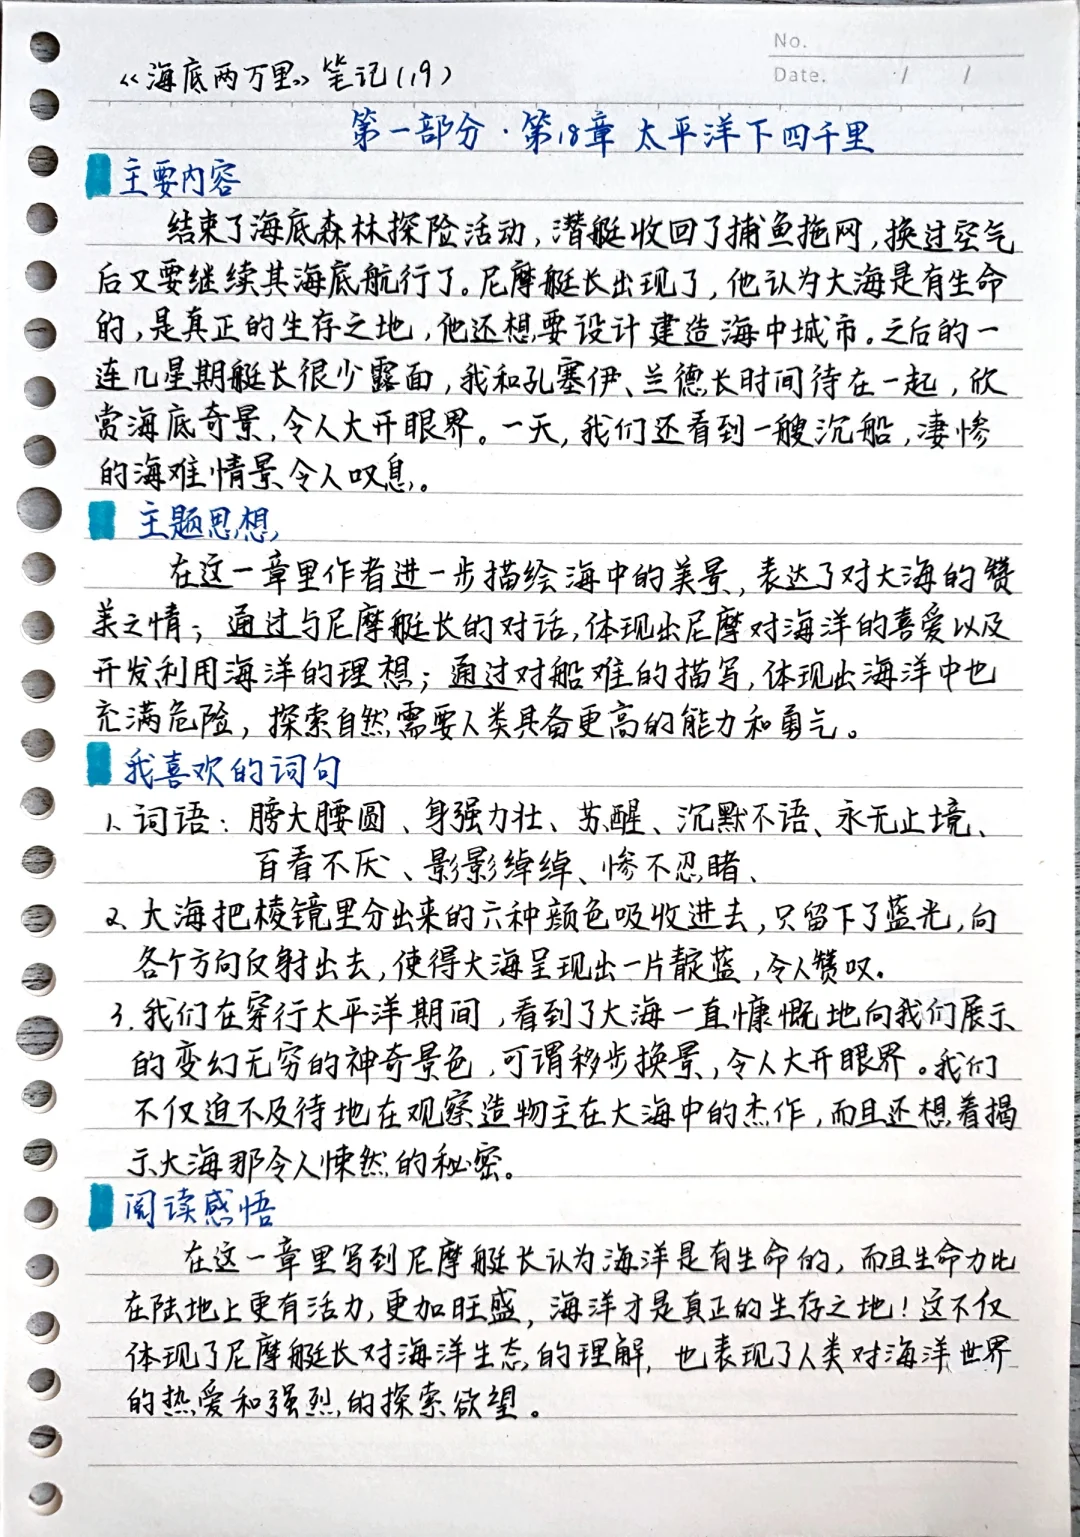 No.
Date. / /
《海底两万里》笔记(19)
第一部分·第18章 太平洋下四千里
主要内容
结束了海底森林探险活动,潜艇收回了捕鱼拖网,换过空气
后又要继续其海底航行了。尼摩艇长出现了,他认为大海是有生命
的,是真正的生存之地,他还想要设计建造海中城市。之后的一
连几星期艇长很少露面,我和孔塞伊、兰德长时间待在一起,欣
赏海底奇景,令人大开眼界。一天,我们还看到一艘沉船,凄惨
的海难情景令人叹息。
主题思想
在这一章里作者进一步描绘海中的美景,表达了对大海的赞
美之情;通过与尼摩艇长的对话,体现出尼摩对海洋的喜爱以及
开发利用海洋的理想;通过对船难的描写,体现出海洋中也
充满危险,探索自然需要人类具备更高的能力和勇气。
我喜欢的词句
1、词语:膀大腰圆、身强力壮、苏醒、沉默不语、永无止境、
百看不厌、影影绰绰、惨不忍睹、
2、大海把棱镜里分出来的六种颜色吸收进去,只留下了蓝光,向
各个方向反射出去,使得大海呈现出一片靛蓝,令人赞叹.
3、我们在穿行太平洋期间,看到了大海一直慷慨地向我们展示
的变幻无穷的神奇景色,可谓移步换景,令人大开眼界。我们
不仅迫不及待地在观察造物主在大海中的杰作,而且还想着揭
示大海那令人悚然的秘密。
阅读感悟
在这一章里写到尼摩艇长认为海洋是有生命的,而且生命力比
在陆地上更有活力,更加旺盛,海洋才是真正的生存之地!这不仅
体现了尼摩艇长对海洋生态的理解,也表现了人类对海洋世界
的热爱和强烈的探索欲望。